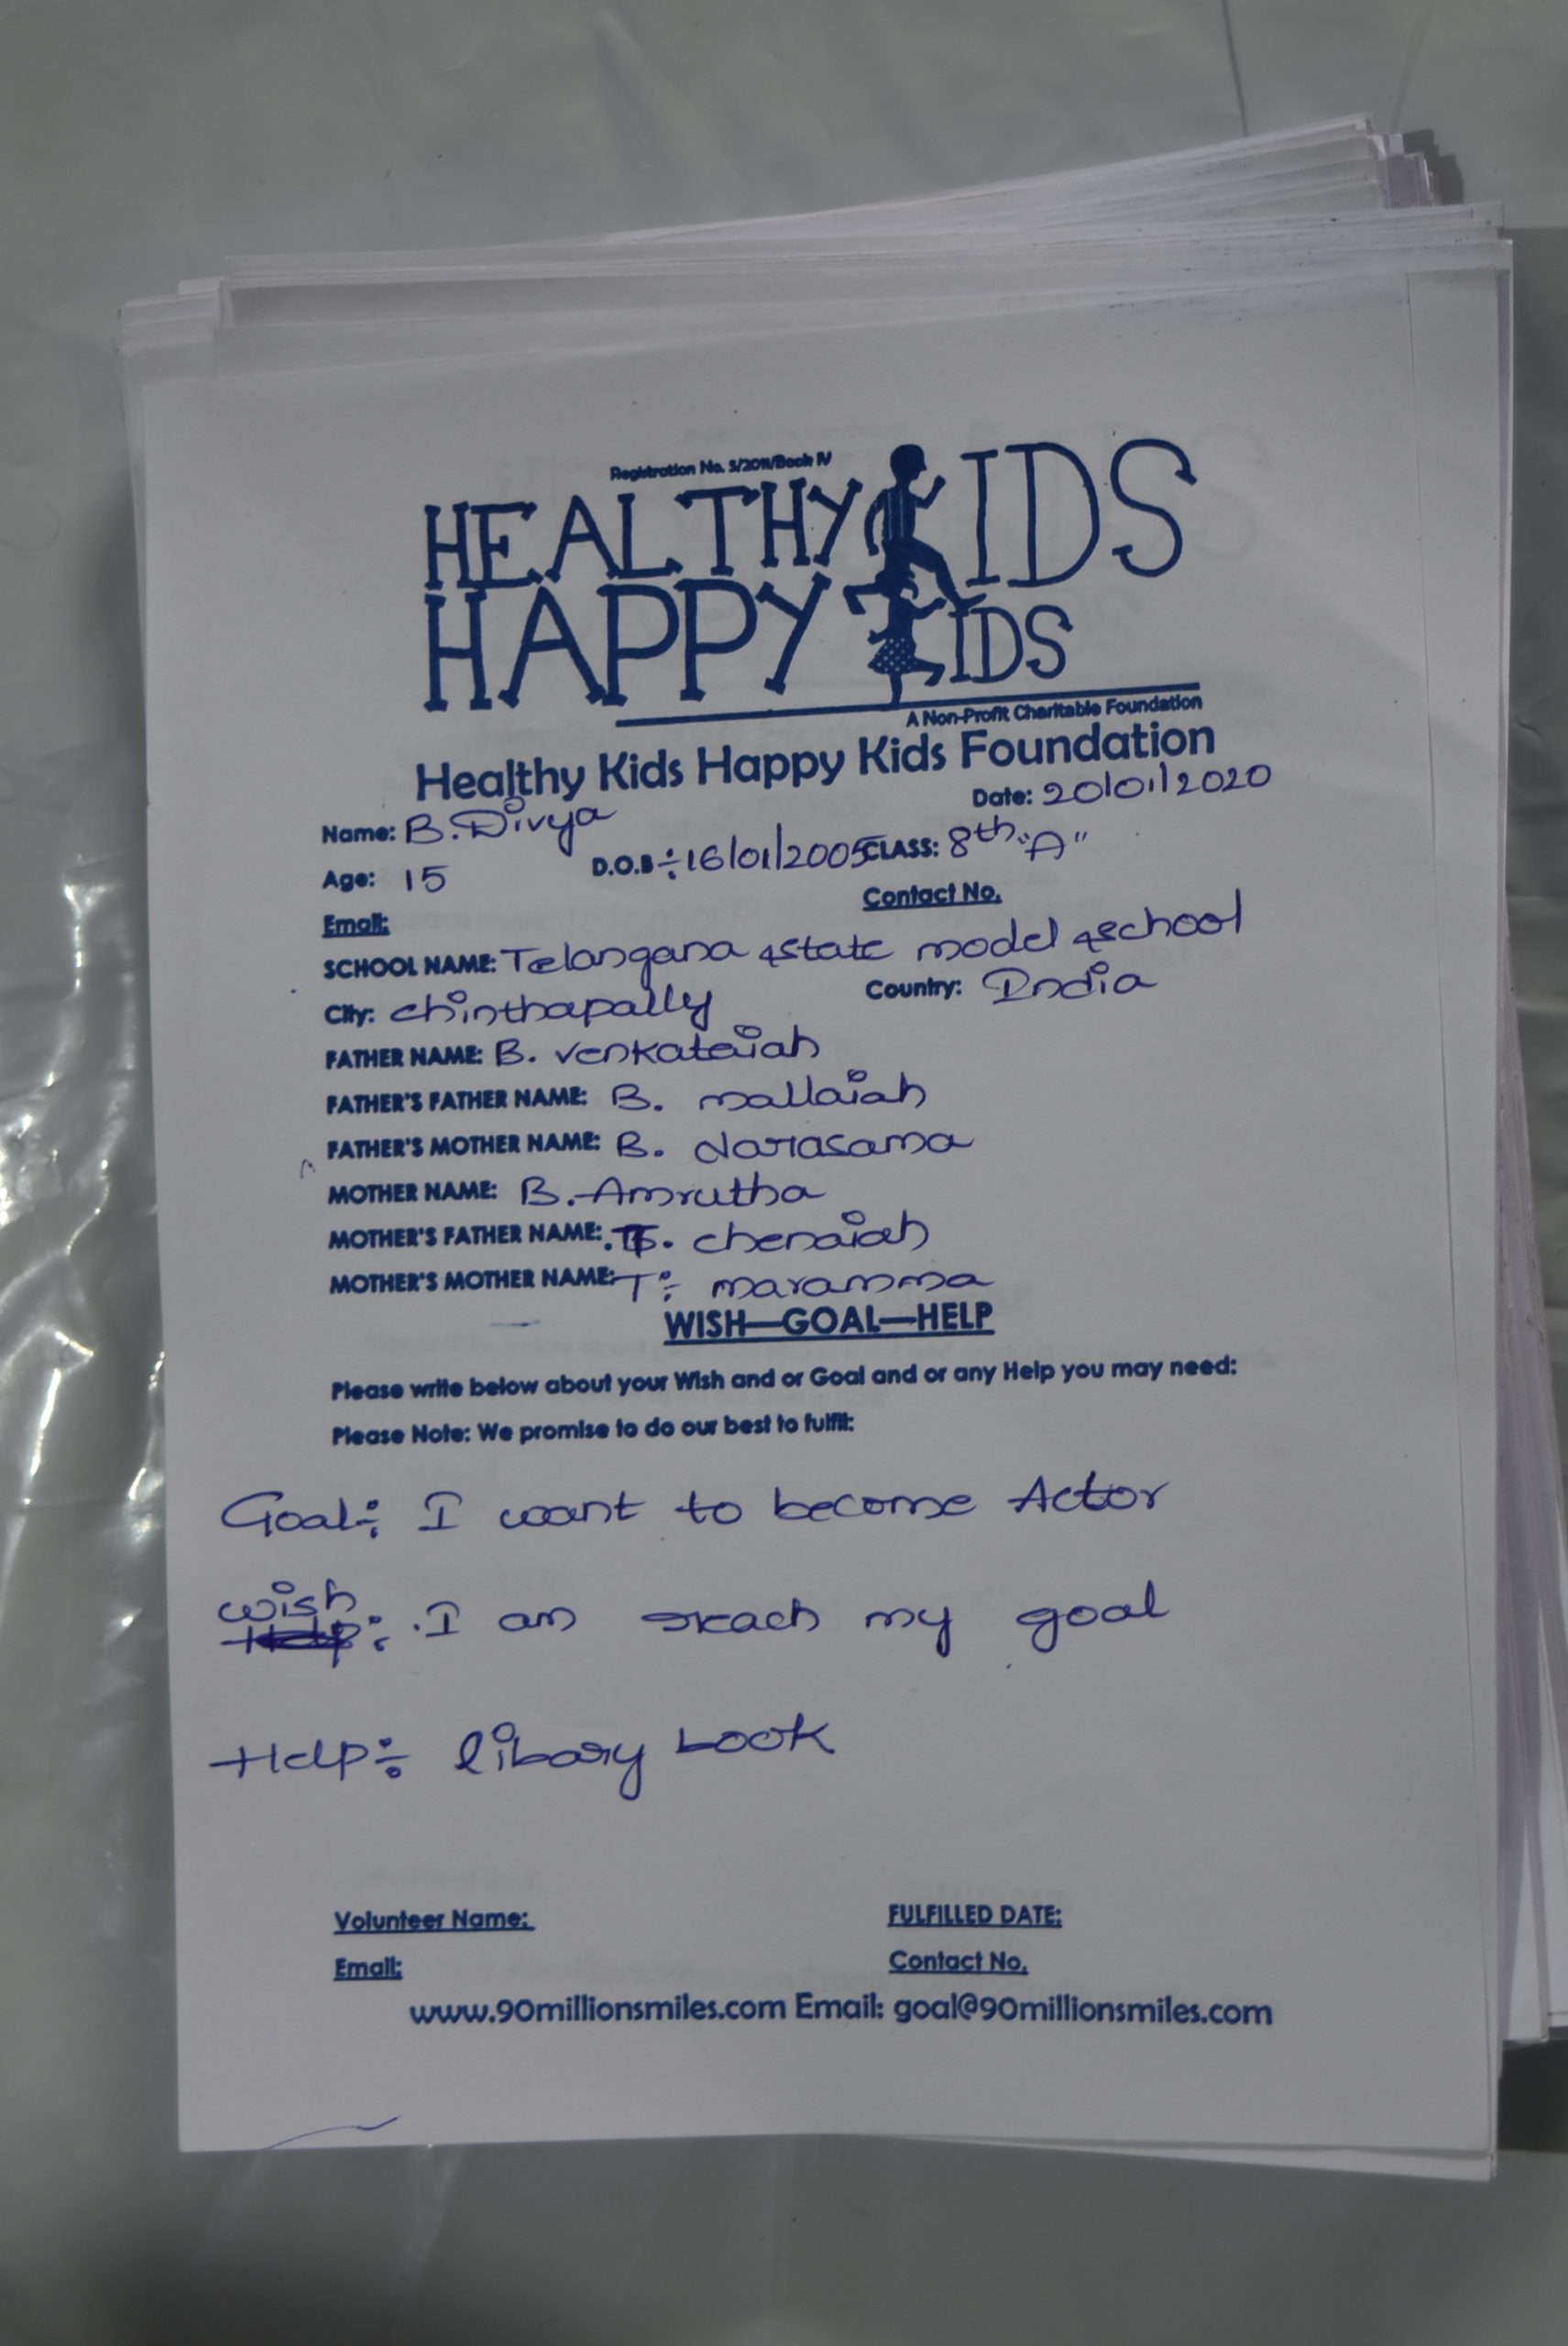 Registration No. 5/2011/Book IV
HEALTHY KIDS
HAPPY KIDS
A Non-Profit Charitable Foundation
Healthy Kids Happy Kids Foundation
Date: 20/01/2020
Name: B.Divya
Age: 15 D.O.B ÷ 16/01/2005 CLASS: 8th "A"
Email: Contact No.
SCHOOL NAME: Telangana state model school
City: chinthapally Country: India
FATHER NAME: B. venkataiah
FATHER'S FATHER NAME: B. mallaiah
FATHER'S MOTHER NAME: B. narasama
MOTHER NAME: B. Amrutha
MOTHER'S FATHER NAME: T. chenaiah
MOTHER'S MOTHER NAME: T: maramma
WISH—GOAL—HELP
Please write below about your Wish and or Goal and or any Help you may need:
Please Note: We promise to do our best to fulfil:
Goal: I want to become Actor
wish
Help: I am reach my goal
Help ÷ libary book
Volunteer Name: FULFILLED DATE:
Email: Contact No.
www.90millionsmiles.com Email: goal@90millionsmiles.com